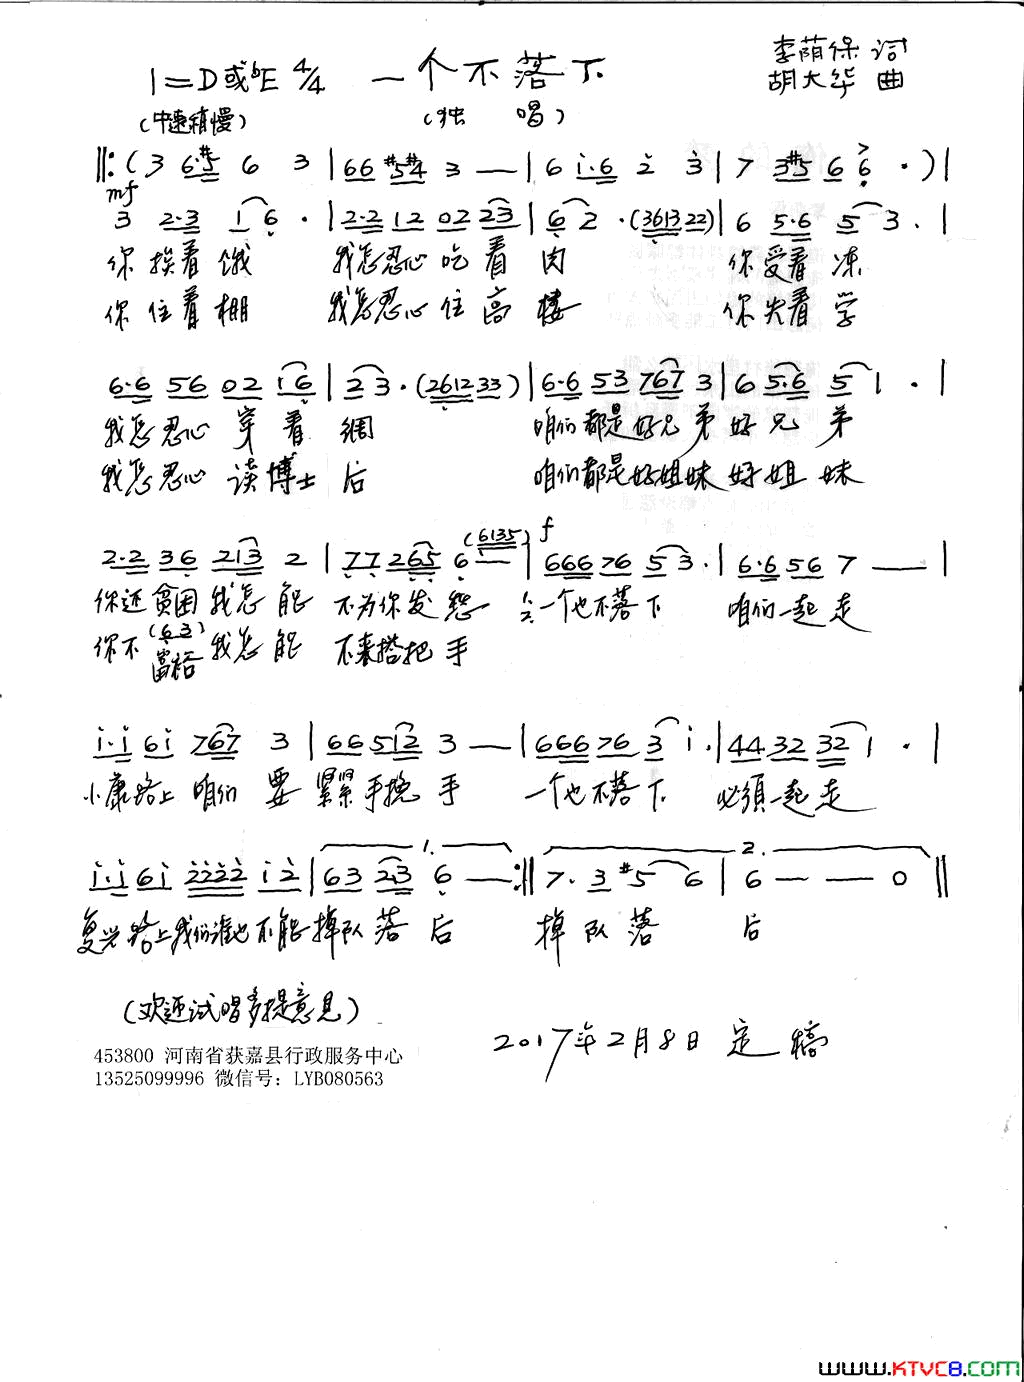 1=D或♭E 4/4 一个不落下
李荫保 词
胡大华 曲
(中速稍慢)
(独 唱)
‖:(3 6·#5 6 3 | 66 #5#4 3 — | 6 i·6 2 3 | 7 3#5 6 6 ·)|
mf
3 2·3 1 6 · | 2·2 12 02 23 | 6 2 ·(361322) | 6 5·6 5 3 · |
你挨着饿 我怎忍心吃着肉 你受着冻
你住着棚 我怎忍心住高楼 你失着学
6·6 56 02 16 | 2 3 ·(261233) | 6·6 53 767 3 | 6 5·6 5 1 · |
我怎忍心穿着绸 咱们都是好兄弟好兄弟
我怎忍心读博士后 咱们都是好姐妹好姐妹
(6135) f
2·2 36 213 2 | 77 265 6 — | 666 76 5 3 · | 6·6 56 7 — |
你还贫困我怎能 不为你发愁 1.2.一个也不落下 咱们一起走
你不富裕我怎能 不来搭把手
(6 3)
i·i 6i 767 3 | 66 512 3 — | 666 76 3 i · | 44 32 32 1 · |
小康路上咱们要紧紧手挽手 一个也不落下 必须一起走
1. 2.
i·i 6i 2222 i2 | 63 23 6 — :‖ 7· 3 #5 6 | 6 — — 0 ‖
复兴路上我们谁也不能掉队落后 掉队落 后
(欢迎试唱多提意见)
2017年2月8日定稿
453800 河南省获嘉县行政服务中心
13525099996 微信号: LYB080563
www.KTVC8.com